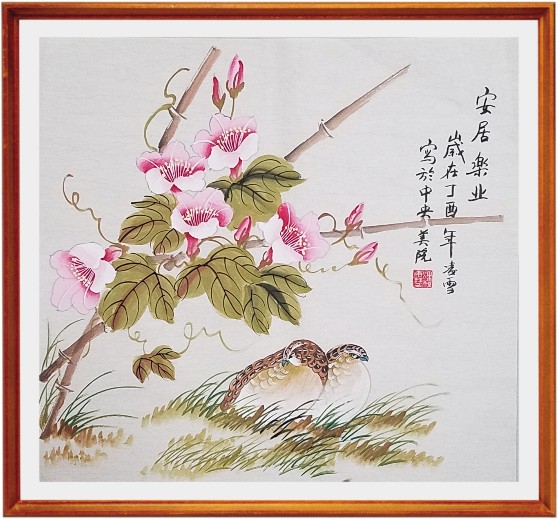 安居樂业
歲在丁酉年凌雪
寫於中央美院